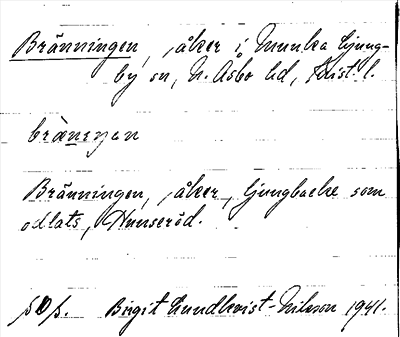 Bränningen, åker i Munka Ljung-
by sn, N. Åsbo hd, Krist. l.
Bränningen, åker, ljungbacke som
odlats, Hunseröd.
Birgit Lundkvist-Nilsson 1941.